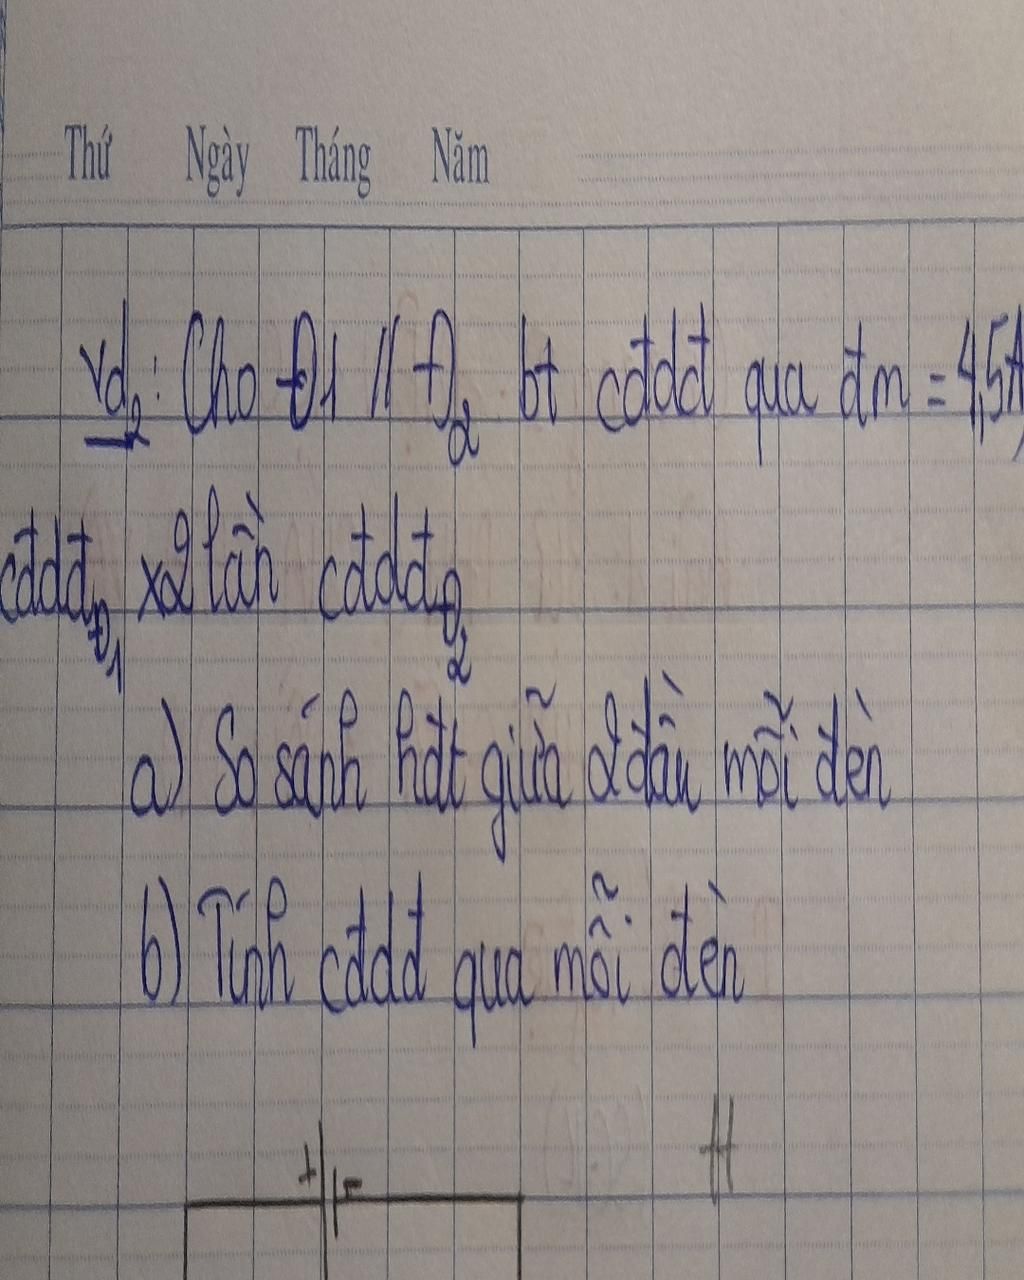 Thứ Ngày Tháng Năm
Vd₂: Cho Đ1 // Đ₂ bt cđdđ qua đm = 4,5A,
cđdđ Đ1 x2 lần cđdđ Đ2
a) So sánh hđt giữa 2 đầu mỗi đèn
b) Tính cđdđ qua mỗi đèn
+ -